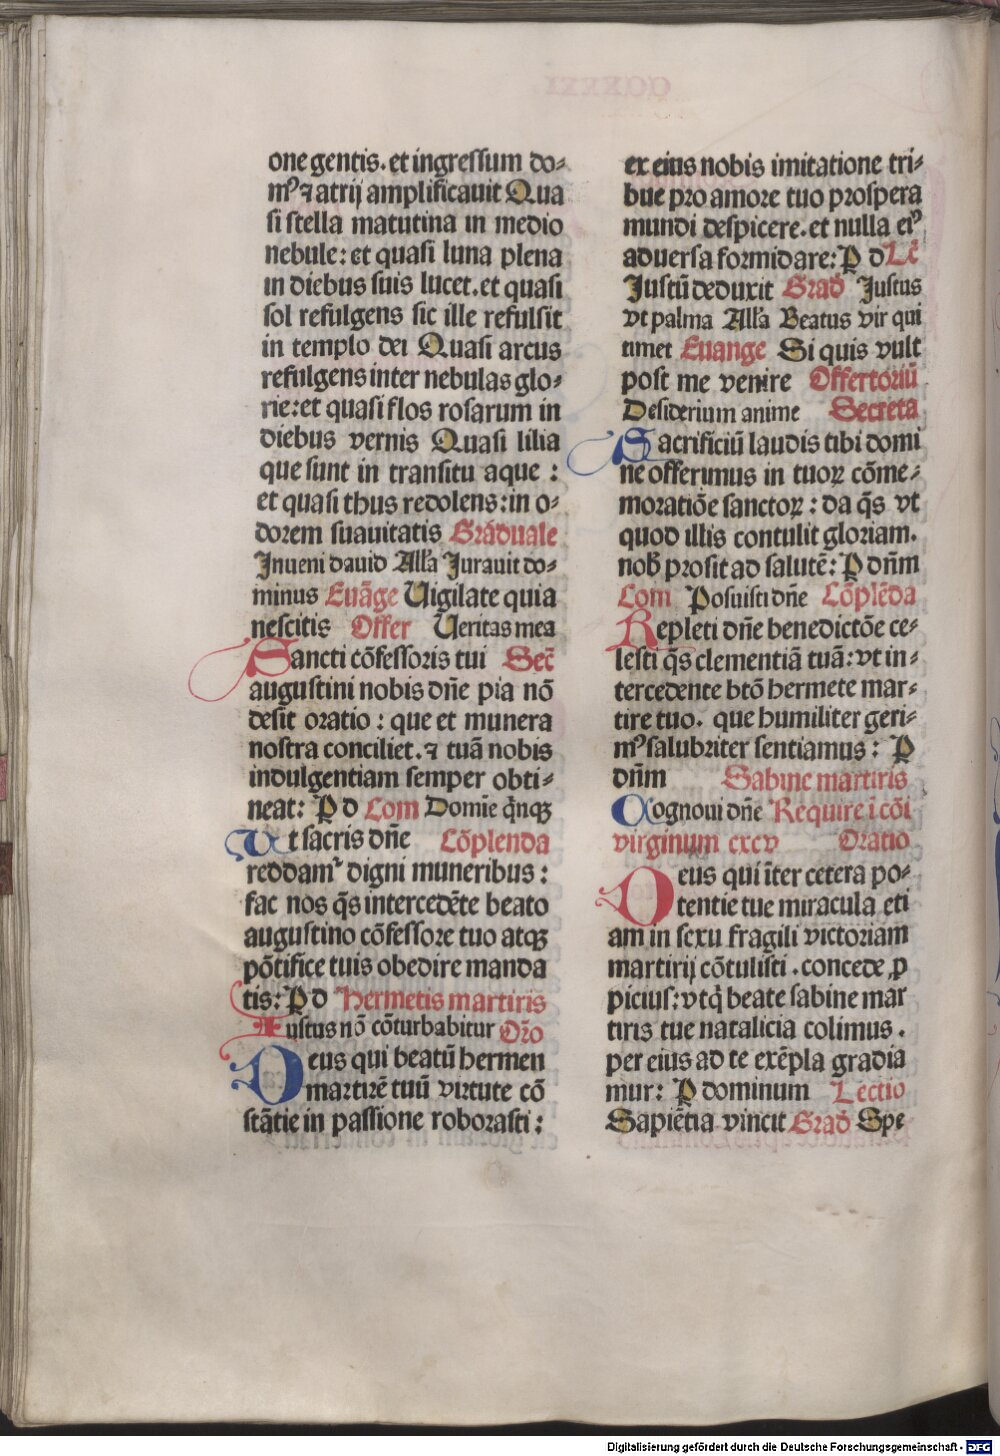 one gentis. et ingressum do⸗
mꝰ ⁊ atrij amplificauit Qua
si stella matutina in medio
nebule: et quasi luna plena
in diebus suis lucet. et quasi
sol refulgens sic ille refulsit
in templo dei Quasi arcus
refulgens inter nebulas glo⸗
rie: et quasi flos rosarum in
diebus vernis Quasi lilia
que sunt in transitu aque :
et quasi thus redolens: in o⸗
dorem suauitatis Graduale
Inueni dauid All'a Jurauit do⸗
minus Euãge Uigilate quia
nescitis Offer Ueritas mea
Sancti cõfessoris tui Sec̃
augustini nobis dñe pia nõ
desit oratio : que et munera
nostra conciliet. ⁊ tuã nobis
indulgentiam semper obti⸗
neat: P d Com Domĩe q̃nqꝫ
Ut sacris dñe Cõplenda
reddamꝰ digni muneribus :
fac nos q̃s intercedẽte beato
augustino cõfessore tuo atqꝫ
põtifice tuis obedire manda
tis: P d Hermetis martiris
Iustus nõ cõturbabitur Or̃o
Deus qui beatũ hermen
martirẽ tuũ virtute cõ
stãtie in passione roborasti :
ex eius nobis imitatione tri⸗
bue pro amore tuo prospera
mundi despicere. et nulla eiꝰ
aduersa formidare: P d Lc̃
Justũ deduxit Grad̃ Justus
vt palma All'a Beatus vir qui
timet Euange Si quis vult
post me venire Offertoriũ
Desiderium anime Secreta
Sacrificiũ laudis tibi domi
ne offerimus in tuoꝝ cõme⸗
moratiõe sanctoꝝ : da q̃s vt
quod illis contulit gloriam.
nob̃ prosit ad salutẽ: P dñm
Com Posuisti dñe Cõplẽda
Repleti dñe benedictõe ce⸗
lesti q̃s clementiã tuã: vt in⸗
tercedente btõ hermete mar⸗
tire tuo. que humiliter geri⸗
mꝰ salubriter sentiamus : P
dñm Sabine martiris
Cognoui dñe Require ĩ cõi
virginum cxcv Oratio
Deus qui ĩter cetera po⸗
tentie tue miracula eti
am in sexu fragili victoriam
martirij cõtulisti . concede ꝓ
picius: vt q̃ beate sabine mar
tiris tue natalicia colimus .
per eius ad te exẽpla gradia
mur: P dominum Lectio
Sapiẽtia vincit Grad̃ Spe
Digitalisierung gefördert durch die Deutsche Forschungsgemeinschaft - DFG